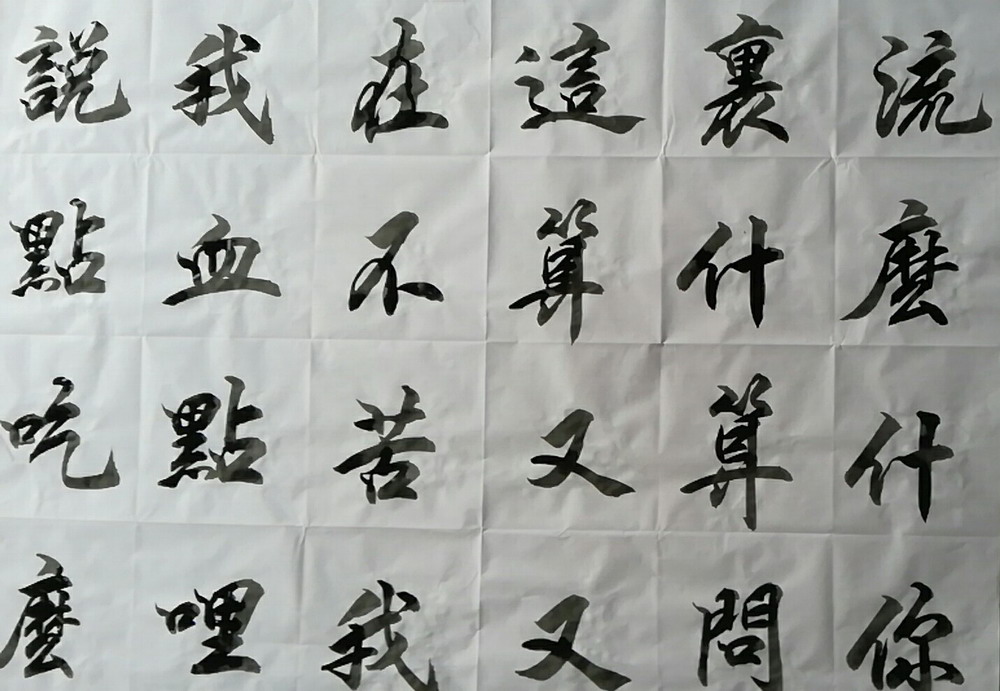 說我在這裏流
點血不算什麽
吃點苦又算什
麽哩我又問你